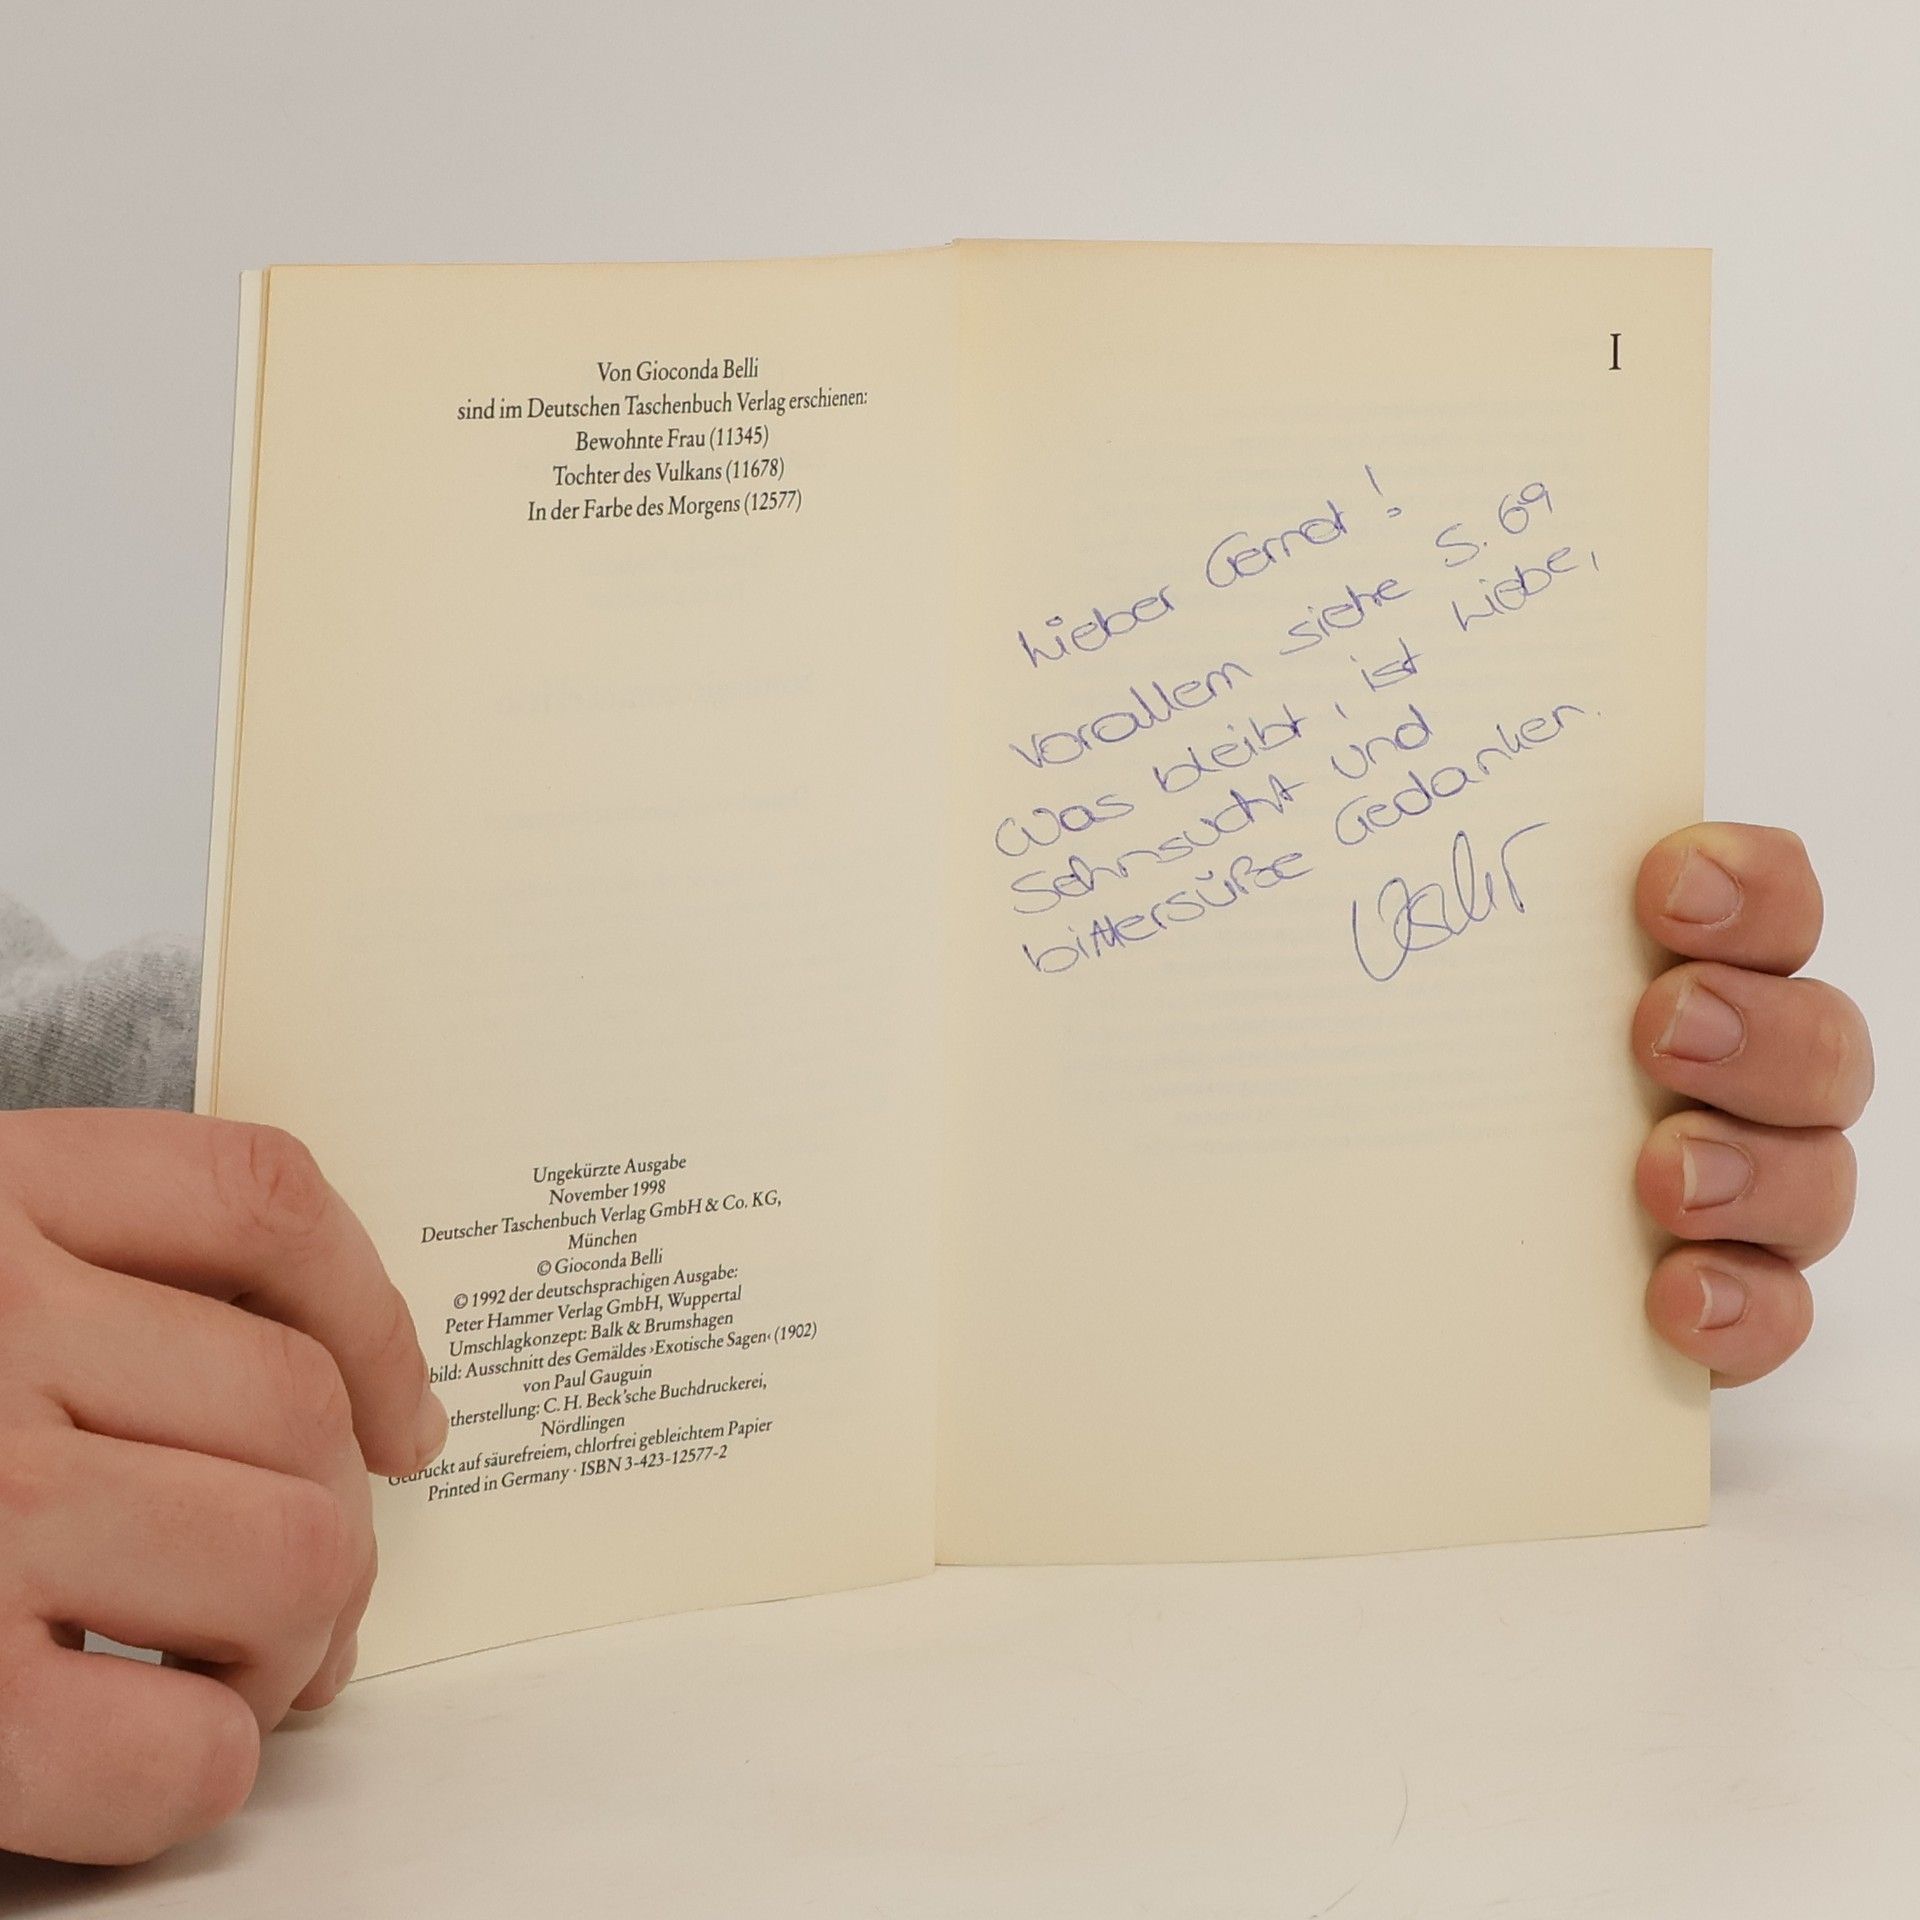 Von Gioconda Belli
sind im Deutschen Taschenbuch Verlag erschienen:
Bewohnte Frau (11345)
Tochter des Vulkans (11678)
In der Farbe des Morgens (12577)
Ungekürzte Ausgabe
November 1998
Deutscher Taschenbuch Verlag GmbH & Co. KG,
München
© Gioconda Belli
© 1992 der deutschsprachigen Ausgabe:
Peter Hammer Verlag GmbH, Wuppertal
Umschlagkonzept: Balk & Brumshagen
bild: Ausschnitt des Gemäldes ›Exotische Sagen‹ (1902)
von Paul Gauguin
therstellung: C. H. Beck'sche Buchdruckerei,
Nördlingen
Gedruckt auf säurefreiem, chlorfrei gebleichtem Papier
Printed in Germany · ISBN 3-423-12577-2
I
Lieber Gernot!
vorallem siehe S. 69
Was bleibt, ist Liebe,
Sehnsucht und
bittersüße Gedanken.